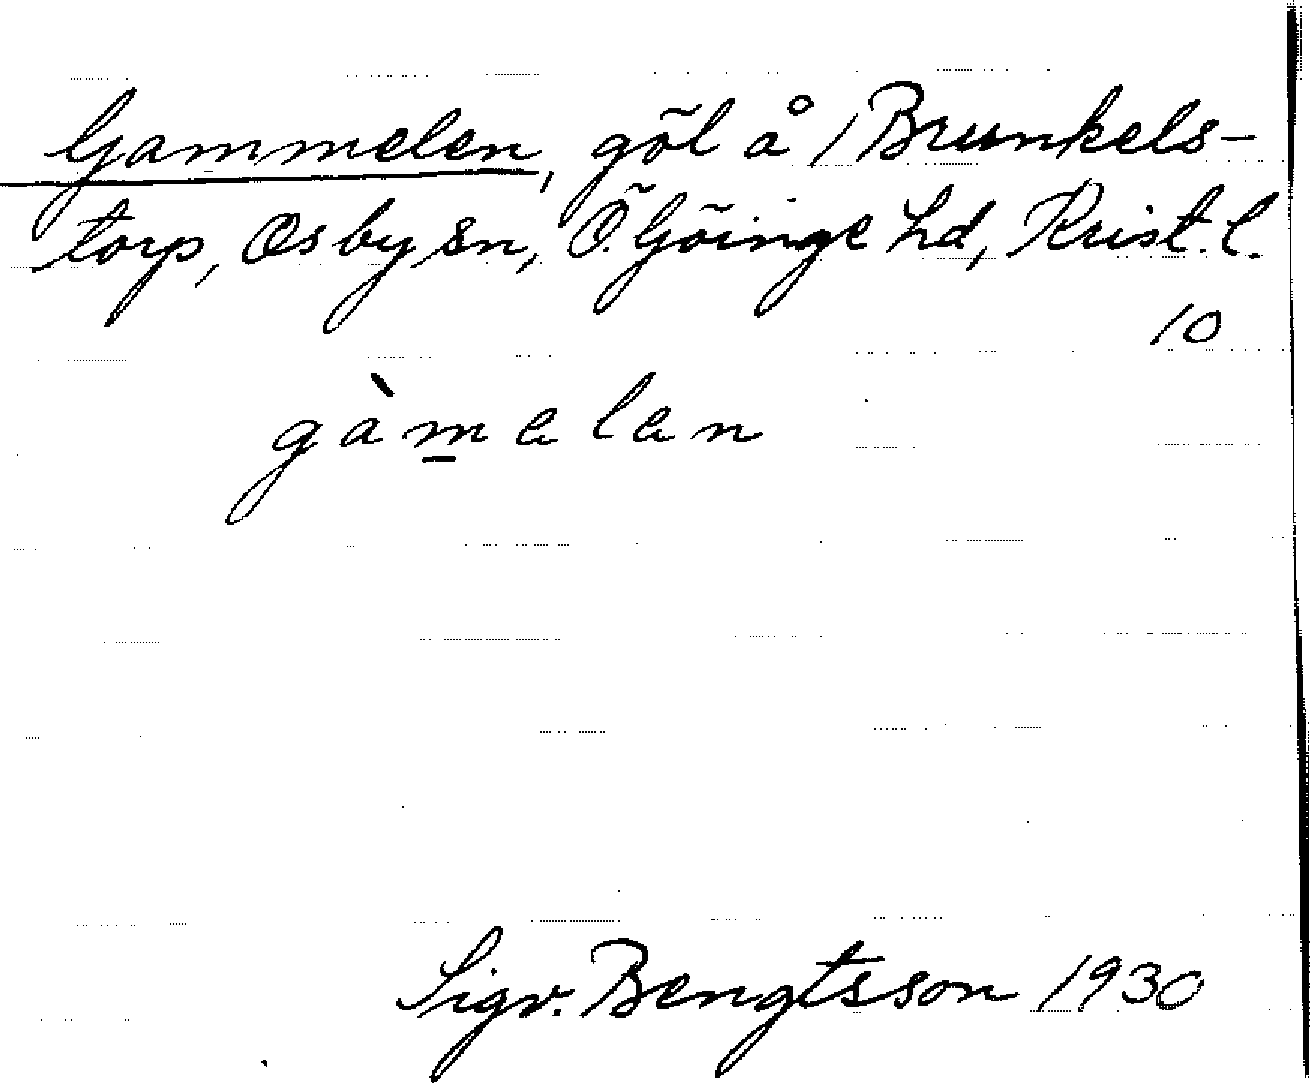 Gammelen, göl å Brunkels-
torp, Osby sn, Ö. Göinge hd, Krist. l.
10
gàmelen
Sigv. Bengtsson 1930